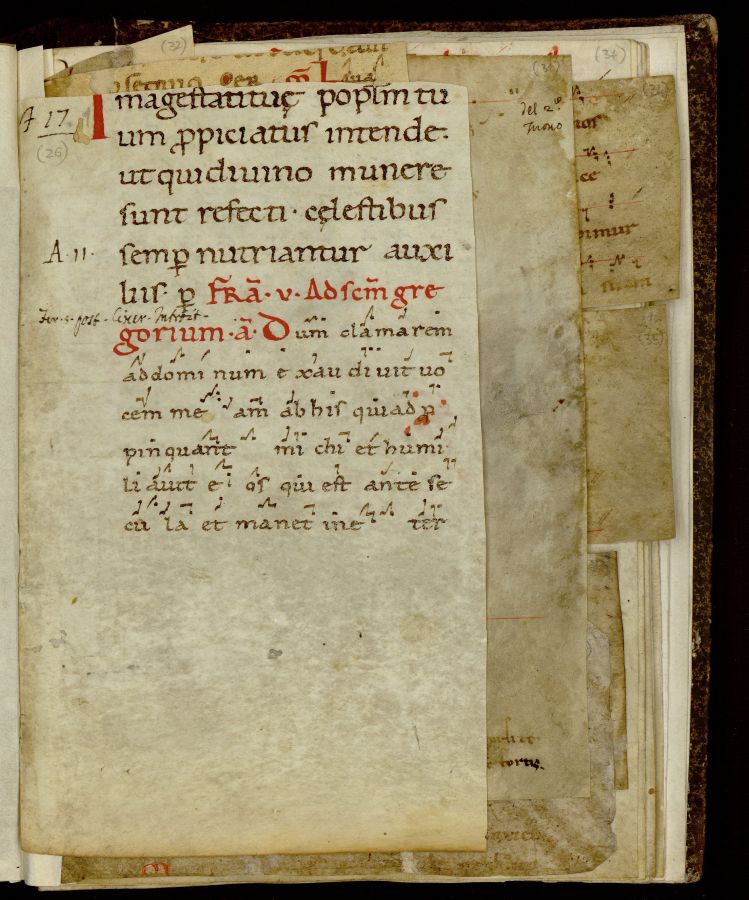 (32)
(34)
A 17
(26)
magestatituę poplm tu
um ꝓpiciatus intende.
ut qui diuino munere
sunt refecti · cęlestibus
A · 11 ·
semp̄ nutriantur auxi
liis · p̄ FR̄ Ā · v · Ad scm̄ gre
Fer · 5 · post · Ciner · Introit ·
gorium · ā · Dum clamarem
ad dominum exaudiuit uo
cem meam ab his qui ad p̄
pinquant michi et humi
liauit eos qui est ante se
cu la et manet in e ter
del 2º
Tuono
(35)